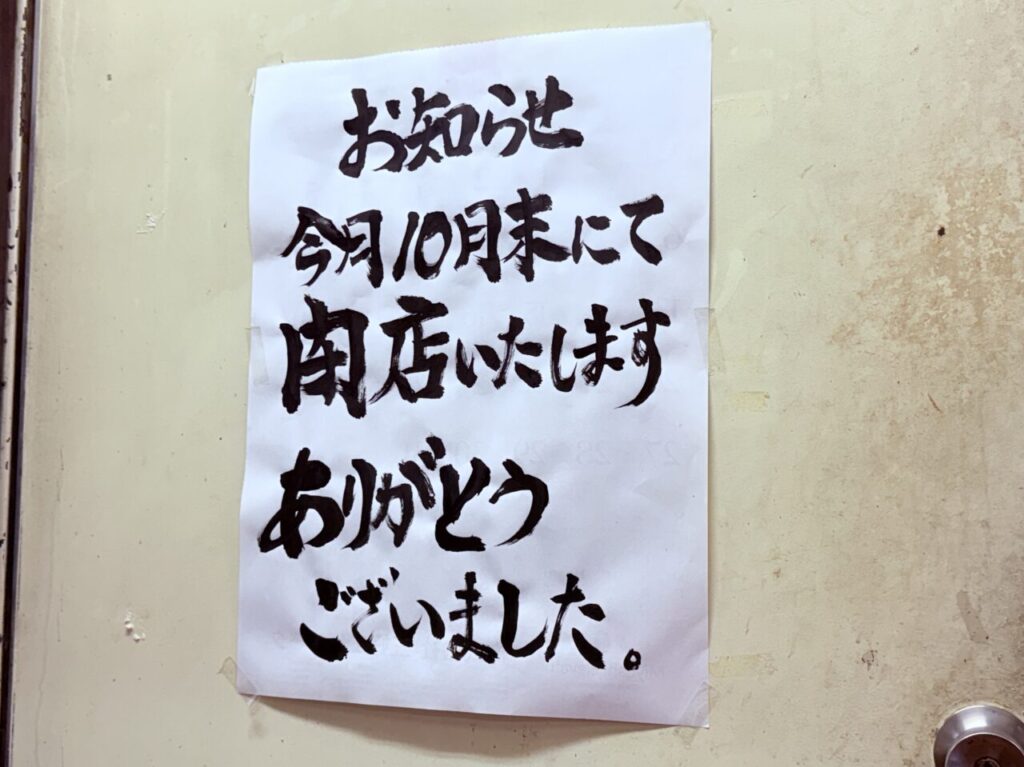 お知らせ
今月10月末にて
閉店いたします
ありがとう
ございました。